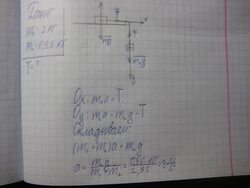 Дано:
m₁=2кг
m₂=0,85кг
T-?
x
T
m₁g
T
m₂g
y
Ox: m₁a=T
Oy: m₂a=m₂g-T
Складываем:
(m₁+m₂)a=m₂g
a=m₂g/(m₁+m₂)=0,85·10/2,85=3 м/с²